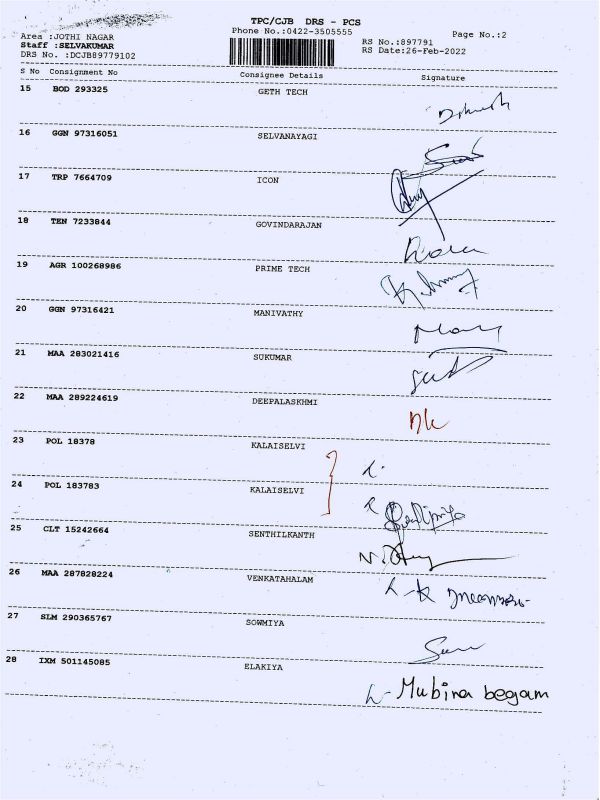 TPC/CJB DRS - PCS
Phone No.:0422-3505555
Page No.:2
Area :JOTHI NAGAR
Staff :SELVAKUMAR
DRS No. :DCJB89779102
RS No.:897791
RS Date:26-Feb-2022
S No Consignment No Consignee Details Signature
15 BOD 293325 GETH TECH
16 GGN 97316051 SELVANAYAGI
17 TRP 7664709 ICON
18 TEN 7233844 GOVINDARAJAN
19 AGR 100268986 PRIME TECH
20 GGN 97316421 MANIVATHY
21 MAA 283021416 SUKUMAR
22 MAA 289224619 DEEPALASKHMI
23 POL 18378 KALAISELVI
24 POL 183783 KALAISELVI
25 CLT 15242664 SENTHILKANTH
26 MAA 287828224 VENKATAHALAM
27 SLM 290365767 SOWMIYA
28 IXM 501145085 ELAKIYA
Mubina begam